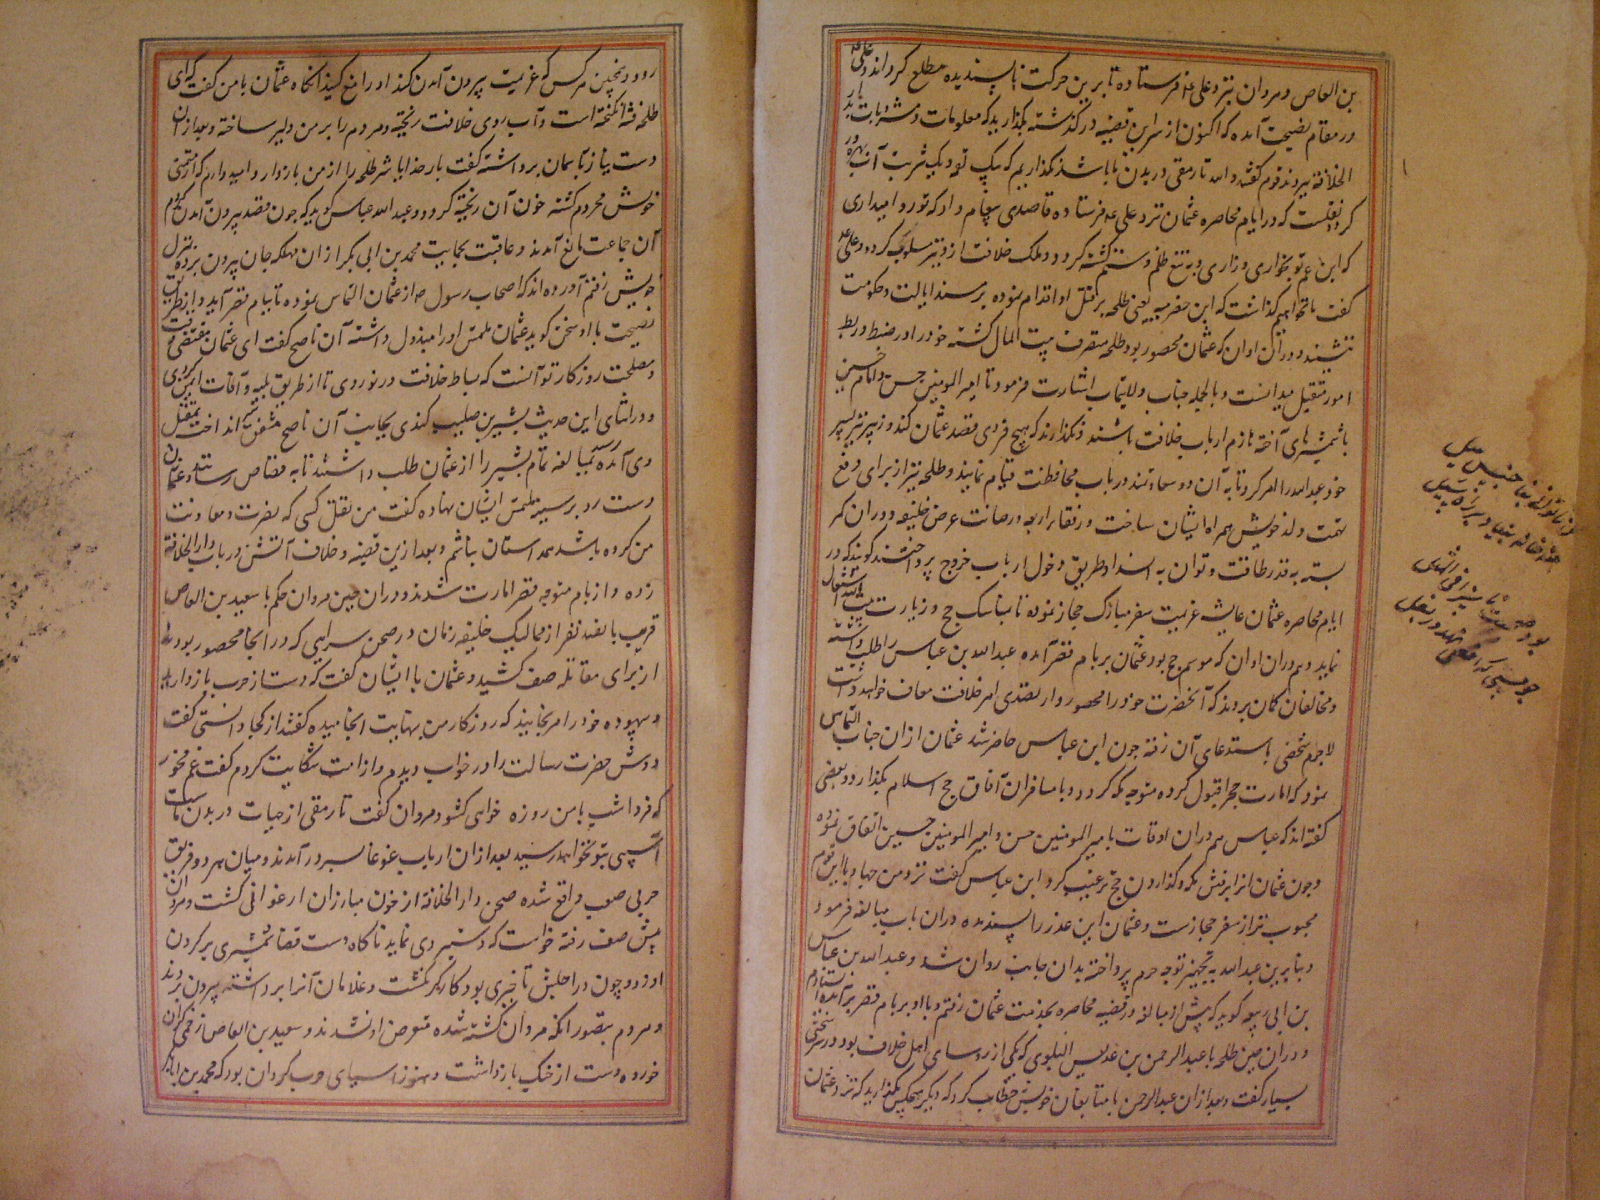 بن العاص و مروان بنزد علی ع فرستاده تا برین حرکت ناپسندیده مطلع کرداند و علی ع
در مقام نصیحت آمده که اکنون از سر این قضیه در گذشته بگذارید که معلومات و مشروبات بدار
الخلافة برند قوم گفتند والله تا رمقی در بدن ما باشد نگذاریم که بیک تو و یک شربت آب بهره ور
کردد نقلست که در ایام محاصره عثمان نزد علی ع فرستاده قاصدی پیغام داد که تو روا میداری
که ابن عم تو بخواری و زاری و به تیغ ظلم و ستم کشته کردد و ملک خلافت از تو نیز مسلوب کردد و علی ع
گفت ما نخواهیم گذاشت که ابن حضرمیه یعنی طلحه بر قتل او اقدام نموده بر مسند ایالت و حکومت
نشیند و در آن اوان که عثمان محصور بود طلحه متصرف بیت المال گشته خود را در ضبط و ربط
امور مستقل میدانست و بالجمله جناب ولایتماب اشارت فرمود تا امیر المومنین حسن و امام حسین
با شمشیرهای آخته ملازم ارباب خلافت باشند و نگذارند که هیچ فردی قصد عثمان کند و زبیر نیز پسر
خود عبدالله را امر کرد تا به آن دو سعادتمند در باب محافظت قیام نمایند و طلحه نیز از برای رفع
تهمت ولد خویش همراه ایشان ساخت و رفقا اربعه در صیانت عرض خلیفه دوران کمر
بسته به قدر طاقت و توان به انسداد طریق دخول ارباب خروج پرداختند گویند که در
ایام محاصره عثمان عایشه عزیمت سفر مبارک حجاز نموده تا بمناسک حج و زیارت بیت الله اشتغال
نماید و هم در آن اوان که موسم حج بود عثمان بر بام قصر آمده عبدالله بن عباس را طلب داشته
و مخالفان گمان بردند که آنحضرت خود را محصور دار بتصدی امر خلافت معاف خواهد داشت
لاجرم شخصی باستدعای آن رفته چون ابن عباس حاضر شد عثمان از ان جناب التماس
نمود که امارت حج را قبول کرده متوجه مکه گردد و با مسافران آفاق حج اسلام بگذارد و بعضی
گفته اند که عباس هم در ان اوقات با میر المومنین حسن و امیر المومنین حسین اتفاق نموده
و چون عثمان او را برفتن مکه و گذاردن حج ترغیب کرد ابن عباس گفت نزد من جهاد با این قوم
محبوب تر از سفر حجازست و عثمان این عذر را پسندیده در ان باب مبالغه فرمود
و بنابرین عبدالله به تجهیز توجه حرم پرداخته بدان جانب روان شد و عبدالله بن عباس
بن ابی ربیعه گوید که پیش از مبالغه در قضیه محاصره بخدمت عثمان رفتم و با او بر بام قصر برآمده استادم
و در ان حین طلحه با عبدالرحمن بن عدیس البلوی که یکی از روسای اهل خلاف بود در سر سخنی
بسیار گفت و بعد از ان عبدالرحمن با متابعان خویش خطاب کرد که دیگر هیچکس را نگذارید که نزد عثمان
رود و نیز هر کس که عزیمت بیرون آمدن کند او را منع کنید انگاه عثمان با من گفت که ای
طلحه فتنه انگیخته است و آب روی خلافت ریخته و مردم را بر من دلیر ساخته و بعد از ان
دست نیاز باسمان برداشته گفت بار خدایا شر طلحه را از من بازدار و امیدوارم که از تمنی
خویش محروم گشته خون آن ریخته گردد و عبدالله عباس گوید که چون قصد بیرون آمدن کردم
آن جماعت مانع آمدند و عاقبت بحمایت محمد بن ابی بکر از ان مهلکه جان بیرون برده بمنزل
خویش رفتم آورده اند که اصحاب رسول ص از عثمان التماس نموده تا ببام قصر آید و از طریق
نصیحت با او سخن گوید عثمان ملتمس او را مبذول داشته آن ناصح گفت ای عثمان مقتضی وقت
و مصلحت روزگار تو آنست که بساط خلافت در نوردی تا از طریق بلیه و آفات ایمن گردی
و در اثنای این حدیث بشیر بن صلیب کندی بجانب آن ناصح مشفق تیر انداخت بمقتل
وی آمده بمبالغه تمام بشیر را از عثمان طلب داشتند تا به قصاص رسانند عثمان
دست رد بر سینه ملتمس ایشان نهاده گفت من بقتل کسی که نصرت و معاونت
من کرده باشد همداستان نباشم و بعد ازین قضیه و خلاف آتش در باب دار الخلافة
زده و از بام متوجه قصر امارت شدند و در ان حین مروان حکم با سعید بن العاص
قریب بانصد نفر از ممالیک خلیفه زمان در صحن سرایی که در انجا محصور بودند
از برای مقاتله صف کشید و عثمان با ایشان گفت که دست از حرب بازدارید
و بیهوده خود را مرنجانید که روزگار من بنهایت انجامیده گفتند از کجا دانستی گفت
دوش حضرت رسالت را در خواب دیدم و از امت شکایت کردم گفت غم مخور
که فردا شب با من روزه خواهی گشود مروان گفت تا رمقی از حیات در بدن ماست
آسیبی بتو نخواهد رسید بعد از ان ارباب غوغا بسر در آمدند و میان هر دو فریق
حربی صعب واقع شده صحن دار الخلافة از خون مبارزان ارغوانی گشت و مروان
پیش صف رفته خواست که دستبردی نماید ناگاه دست قضا شمشیری بر گردن
او زد و چون در اجلش تاخیری بود کارگر نگشت و غلامان آنرا برداشته بیرون بردند
و مردم بتصور آنکه مروان گشته شده متعرض او نشدند و سعید بن العاص زخمی گران
خورده دست از جنگ بازداشت و هنوز آسیای حرب گردان بود که محمد بن ابابکر